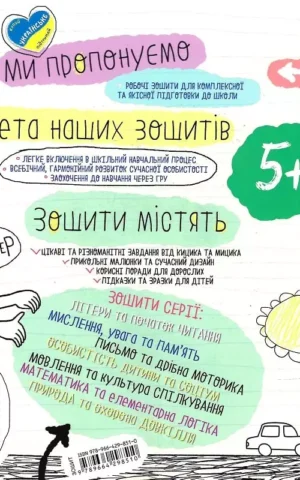 УКРАЇНСЬКЕ
МИ ПРОПОНУЄМО
РОБОЧІ ЗОШИТИ ДЛЯ КОМПЛЕКСНОЇ
ТА ЯКІСНОЇ ПІДГОТОВКИ ДО ШКОЛИ
ЕТА НАШИХ ЗОШИТІВ
• ЛЕГКЕ ВКЛЮЧЕННЯ В ШКІЛЬНИЙ НАВЧАЛЬНИЙ ПРОЦЕС
• ВСЕБІЧНИЙ, ГАРМОНІЙНИЙ РОЗВИТОК СУЧАСНОЇ ОСОБИСТОСТІ
• ЗАОХОЧЕННЯ ДО НАВЧАННЯ ЧЕРЕЗ ГРУ
5+
ЗОШИТИ МІСТЯТЬ
ЕР
ЦІКАВІ ТА РІЗНОМАНІТНІ ЗАВДАННЯ ВІД КИЦИКА ТА МИЦИКА
ПРИКОЛЬНІ МАЛЮНКИ ТА СУЧАСНИЙ ДИЗАЙН
КОРИСНІ ПОРАДИ ДЛЯ ДОРОСЛИХ
ПІДКАЗКИ ТА ЗРАЗКИ ДЛЯ ДІТЕЙ
ЗОШИТИ СЕРІЇ:
ЛІТЕРИ ТА ПОЧАТОК ЧИТАННЯ
МИСЛЕННЯ, УВАГА ТА ПАМ'ЯТЬ
ПИСЬМО ТА ДРІБНА МОТОРИКА
ОСОБИСТІСТЬ ДИТИНИ ТА СОЦІУМ
МОВЛЕННЯ ТА КУЛЬТУРА СПІЛКУВАННЯ
МАТЕМАТИКА ТА ЕЛЕМЕНТАРНА ЛОГІКА
ПРИРОДА ТА ОХОРОНА ДОВКІЛЛЯ
ISBN 978-966-429-831-0
9789664298310